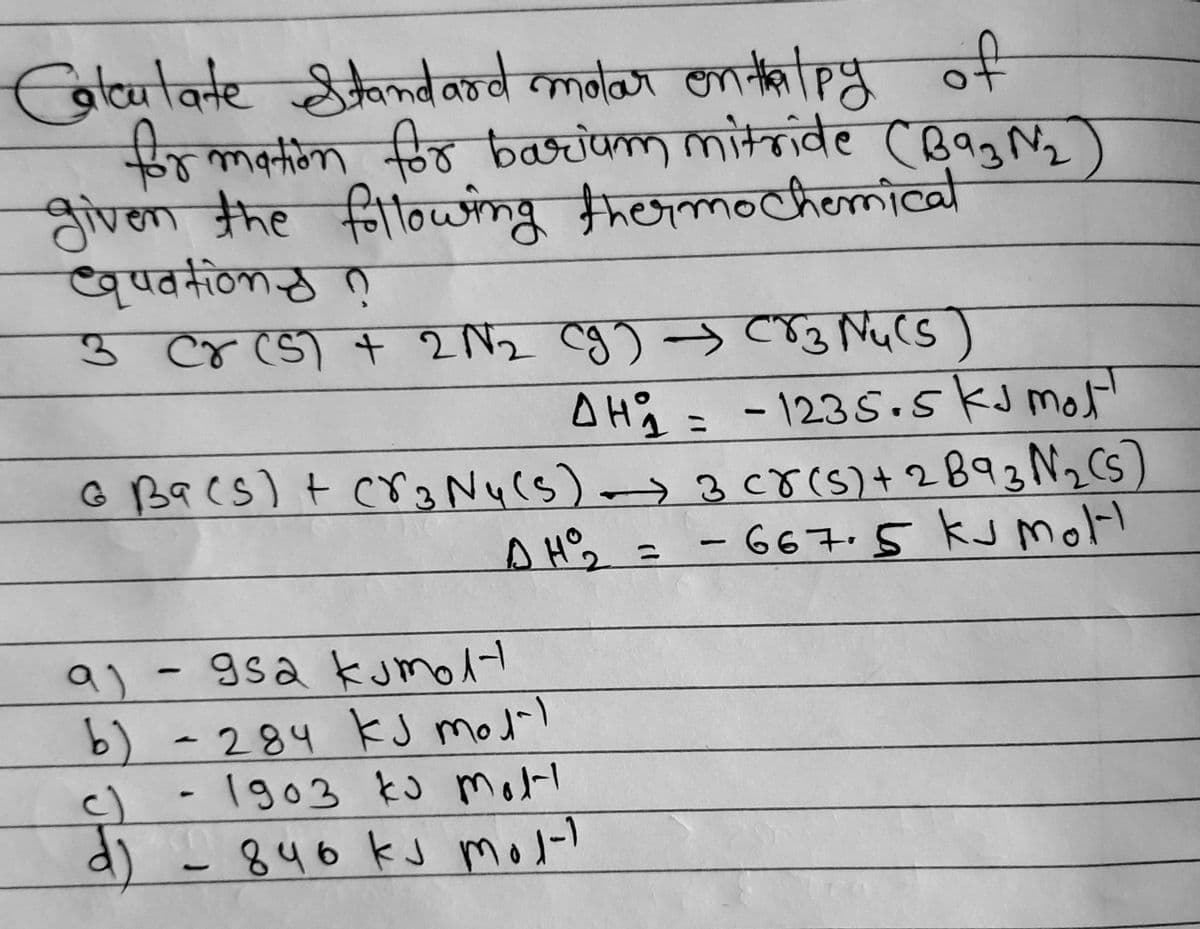 Calculate Standard molar enthalpy of
formation for barium nitride (Ba₃N₂)
given the following thermochemical
equations ?
3 Cr (s) + 2N₂ (g) → Cr₃N₄(s)
ΔH°₁ = -1235.5 kJ mol⁻¹
6 Ba(s) + Cr₃N₄(s) → 3 Cr(s) + 2Ba₃N₂(s)
ΔH°₂ = -667.5 kJ mol⁻¹
a) - 952 kJmol⁻¹
b) - 284 kJ mol⁻¹
c) - 1903 kJ mol⁻¹
d) - 846 kJ mol⁻¹